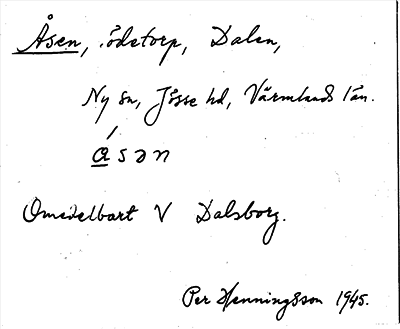 Åsen, ödetorp, Dalen,
Ny sn, Jösse hd, Värmlands län.
ɑ́sən
Omedelbart V Dalsborg.
Per Henningsson 1945.